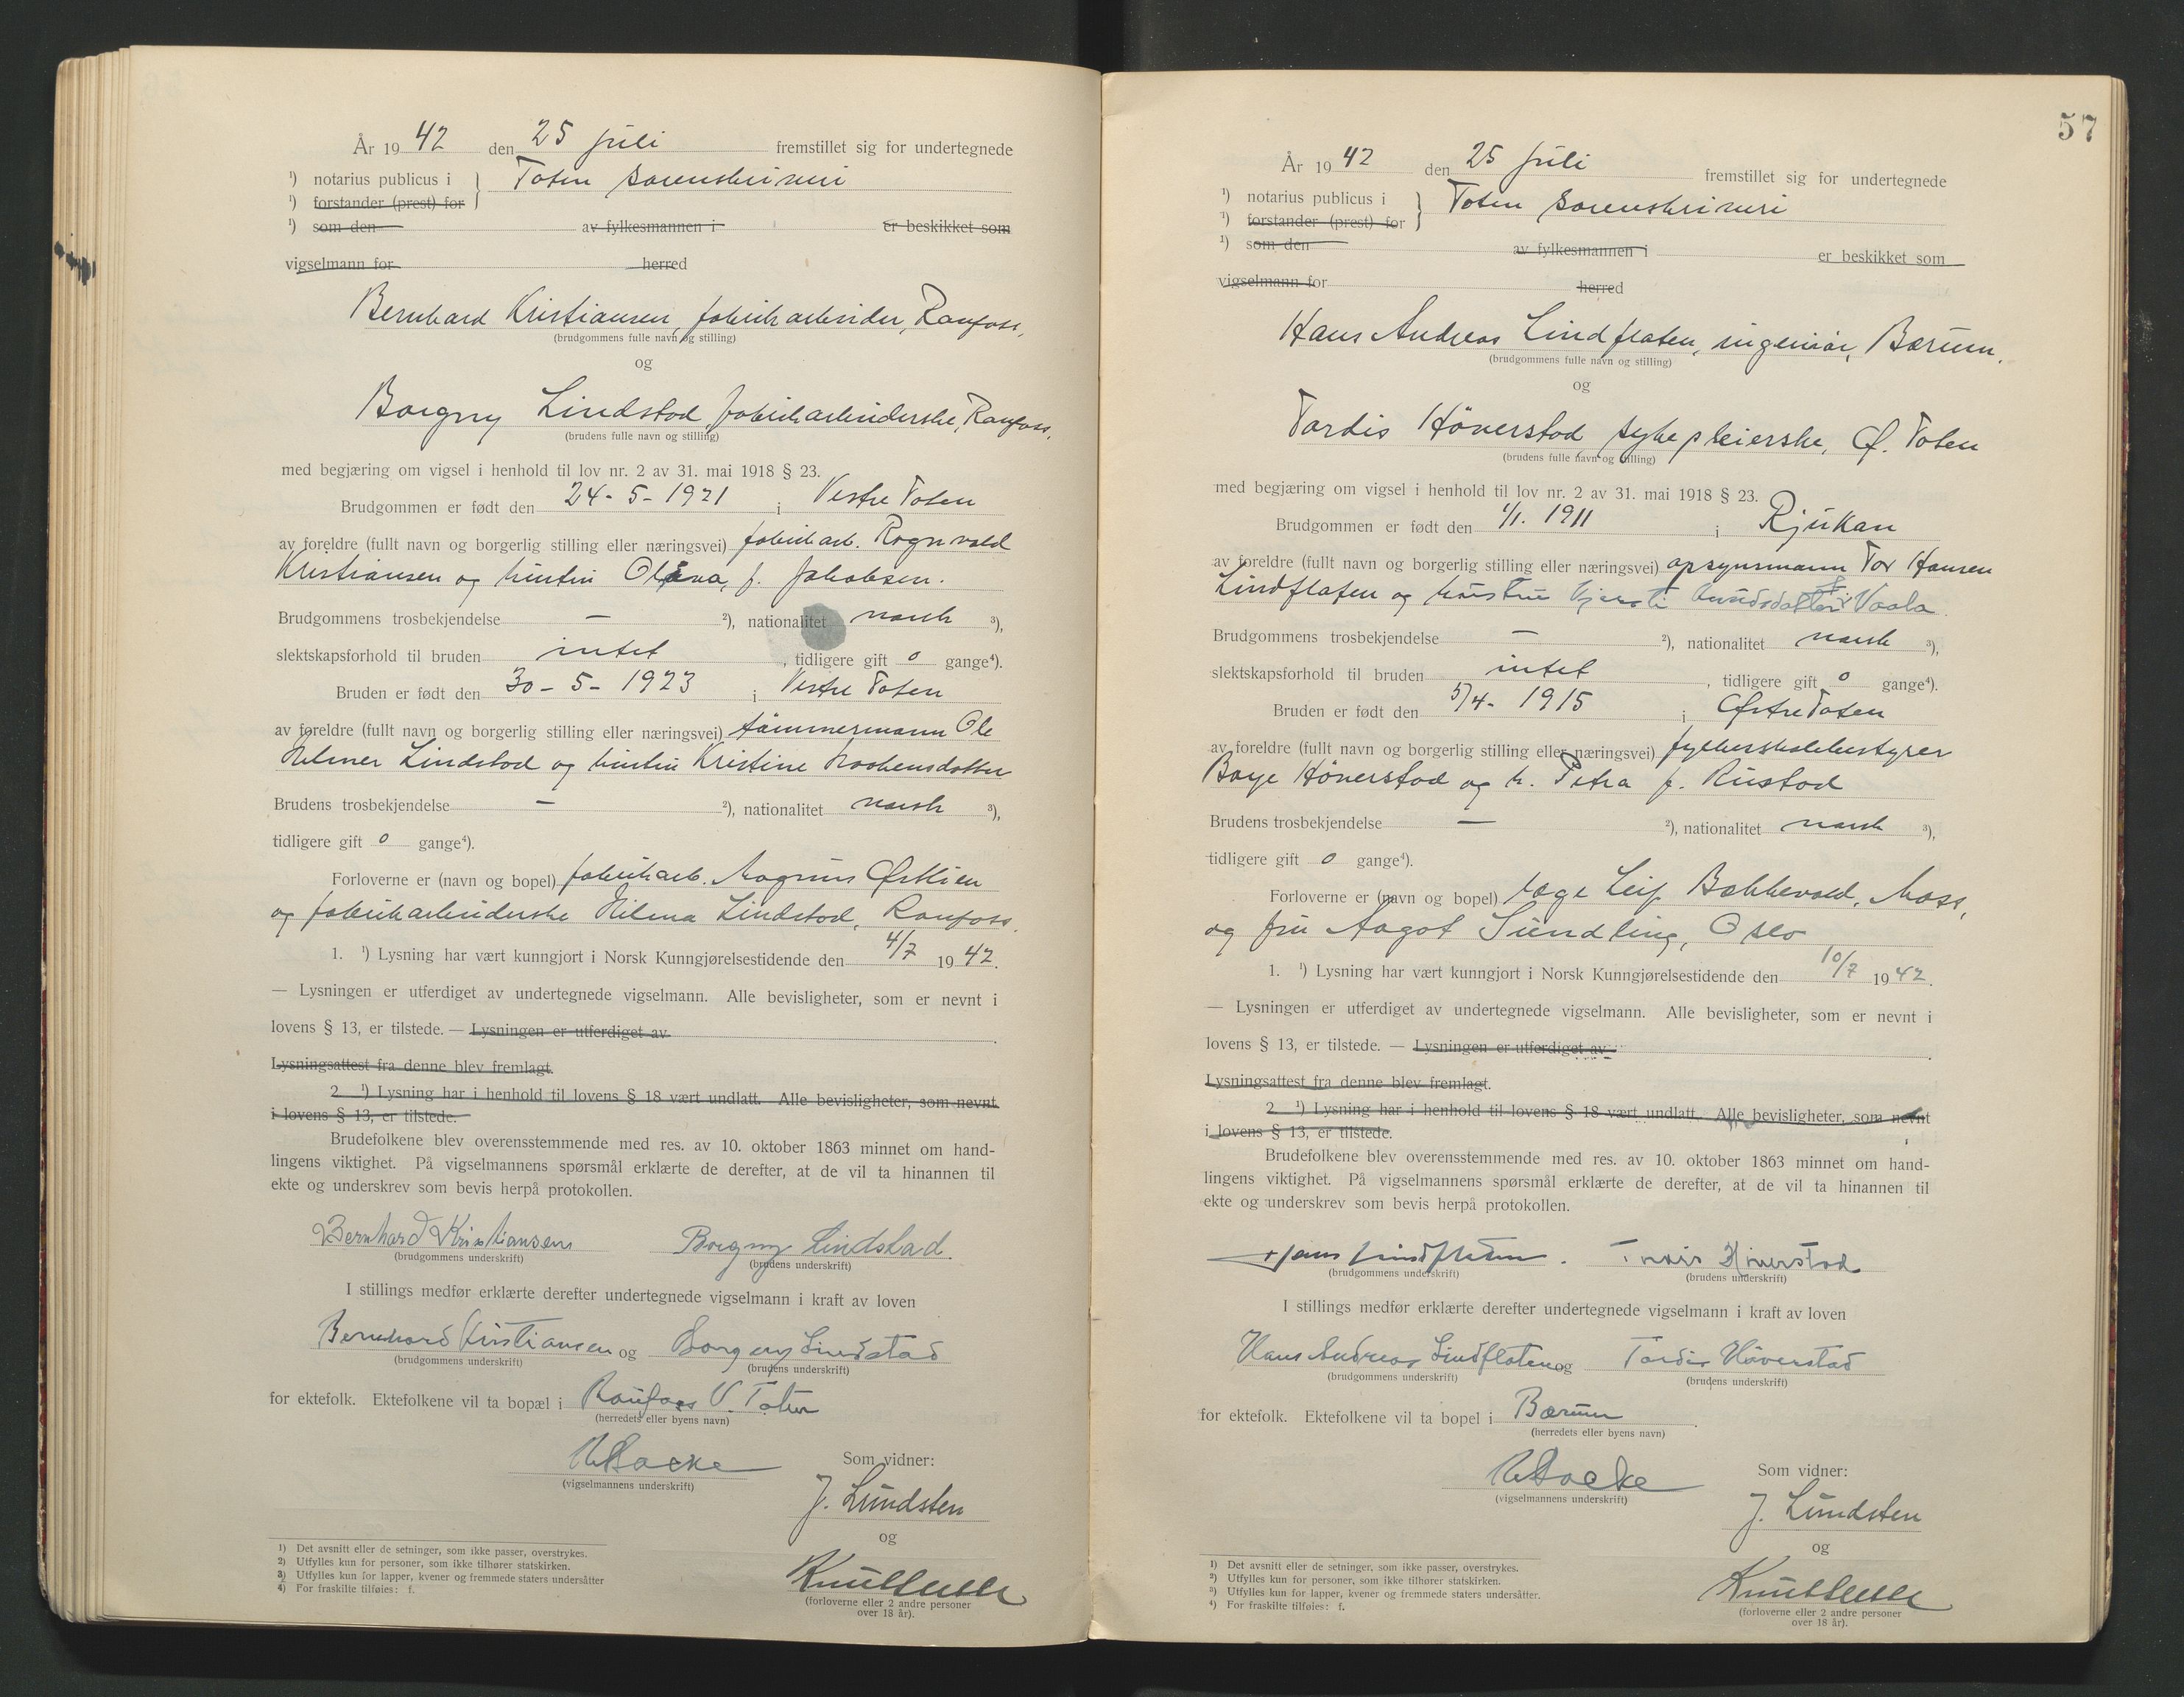 År 19 42 den 25 juli fremstillet sig for undertegnede
¹) notarius publicus i } Toten sorenskriveri
¹) forstander (prest) for
¹) som den av fylkesmannen i er beskikket som
vigselmann for herred
Bernhard Kristiansen, fabrikarbeider, Raufoss,
(brudgommens fulle navn og stilling)
og
Borgny Lindstad, fabrikarbeiderske, Raufoss,
(brudens fulle navn og stilling)
med begjæring om vigsel i henhold til lov nr. 2 av 31. mai 1918 § 23.
Brudgommen er født den 24-5-1921 i Vestre Toten
av foreldre (fullt navn og borgerlig stilling eller næringsvei) fabrikarb. Rognvald
Kristiansen og hustru f. Jakobsen.
Brudgommens trosbekjendelse — ²), nationalitet norsk ³),
slektskapsforhold til bruden intet, tidligere gift 0 gange⁴).
Bruden er født den 30-5-1923 i Vestre Toten
av foreldre (fullt navn og borgerlig stilling eller næringsvei) tømmermann Ole
Hilmer Lindstad og hustru Kristine Haakensdatter
Brudens trosbekjendelse — ²), nationalitet norsk ³),
tidligere gift 0 gange⁴).
Forloverne er (navn og bopel) fabrikarb. Magnus Østlien
og fabrikarbeiderske Hilma Lindstad, Raufoss.
1. ¹) Lysning har vært kunngjort i Norsk Kunngjørelsestidende den 4/7 19 42.
— Lysningen er utferdiget av undertegnede vigselmann. Alle bevisligheter, som er nevnt i
lovens § 13, er tilstede. — Lysningen er utferdiget av
Lysningsattest fra denne blev fremlagt.
2 ¹) Lysning har i henhold til lovens § 18 vært undlatt. Alle bevisligheter, som nevnt
i lovens § 13, er tilstede.
Brudefolkene blev overensstemmende med res. av 10. oktober 1863 minnet om hand-
lingens viktighet. På vigselmannens spørsmål erklærte de derefter, at de vil ta hinannen til
ekte og underskrev som bevis herpå protokollen.
Bernhard Kristiansen Borgny Lindstad.
(brudgommens underskrift) (brudens underskrift)
I stillings medfør erklærte derefter undertegnede vigselmann i kraft av loven
Bernhard Kristiansen og Borgny Lindstad
(brudgommens underskrift) (brudens underskrift)
for ektefolk. Ektefolkene vil ta bopæl i Raufoss V. Toten
(herredets eller byens navn)
Som vidner:
(vigselmannens underskrift)
J. Lundsten
og
(forloverne eller 2 andre personer
over 18 år).
¹) Det avsnitt eller de setninger, som ikke passer, overstrykes.
²) Utfylles kun for personer, som ikke tilhører statskirken.
³) Utfylles kun for lapper, kvener og fremmede staters undersåtter
⁴) For fraskilte tilføies: f.
57
År 19 42 den 25 juli fremstillet sig for undertegnede
¹) notarius publicus i } Toten sorenskriveri
¹) forstander (prest) for
¹) som den av fylkesmannen i er beskikket som
vigselmann for herred
Hans Andreas Lindflaten, ingeniør, Bærum.
(brudgommens fulle navn og stilling)
og
Tordis Høverstad, sykepleierske, Ø. Toten
(brudens fulle navn og stilling)
med begjæring om vigsel i henhold til lov nr. 2 av 31. mai 1918 § 23.
Brudgommen er født den 1/1. 1911 i Rjukan
av foreldre (fullt navn og borgerlig stilling eller næringsvei) opsynsmann Tov Hansen
Lindflaten og hustru Kjersti f. Vaala.
Brudgommens trosbekjendelse — ²), nationalitet norsk ³),
slektskapsforhold til bruden intet, tidligere gift 0 gange⁴).
Bruden er født den 5/4- 1915 i Østre Toten
av foreldre (fullt navn og borgerlig stilling eller næringsvei) fylkesskolebestyrer
Boye Høverstad og h. Petra f. Rustad
Brudens trosbekjendelse — ²), nationalitet norsk ³),
tidligere gift 0 gange⁴).
Forloverne er (navn og bopel) læge Leif Bakkevold, Moss,
og fru Aagot Sundling, Oslo
1. ¹) Lysning har vært kunngjort i Norsk Kunngjørelsestidende den 10/7 19 42.
— Lysningen er utferdiget av undertegnede vigselmann. Alle bevisligheter, som er nevnt i
lovens § 13, er tilstede. — Lysningen er utferdiget av
Lysningsattest fra denne blev fremlagt.
2 ¹) Lysning har i henhold til lovens § 18 vært undlatt. Alle bevisligheter, som nevnt
i lovens § 13, er tilstede.
Brudefolkene blev overensstemmende med res. av 10. oktober 1863 minnet om hand-
lingens viktighet. På vigselmannens spørsmål erklærte de derefter, at de vil ta hinannen til
ekte og underskrev som bevis herpå protokollen.
Hans Lindflaten. Tordis Høverstad
(brudgommens underskrift) (brudens underskrift)
I stillings medfør erklærte derefter undertegnede vigselmann i kraft av loven
Hans Andreas Lindflaten og Tordis Høverstad
(brudgommens underskrift) (brudens underskrift)
for ektefolk. Ektefolkene vil ta bopel i Bærum.
(herredets eller byens navn)
Som vidner:
(vigselmannens underskrift)
J. Lundsten
og
(forloverne eller 2 andre personer
over 18 år).
¹) Det avsnitt eller de setninger, som ikke passer, overstrykes.
²) Utfylles kun for personer, som ikke tilhører statskirken.
³) Utfylles kun for lapper, kvener og fremmede staters undersåtter.
⁴) For fraskilte tilføies: f.